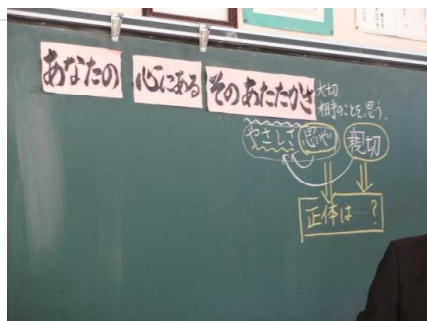 あなたの 心にある そのあたたかさ
大切
相手のことを思う。
やさしさ 思いやり 親切
正体は…?